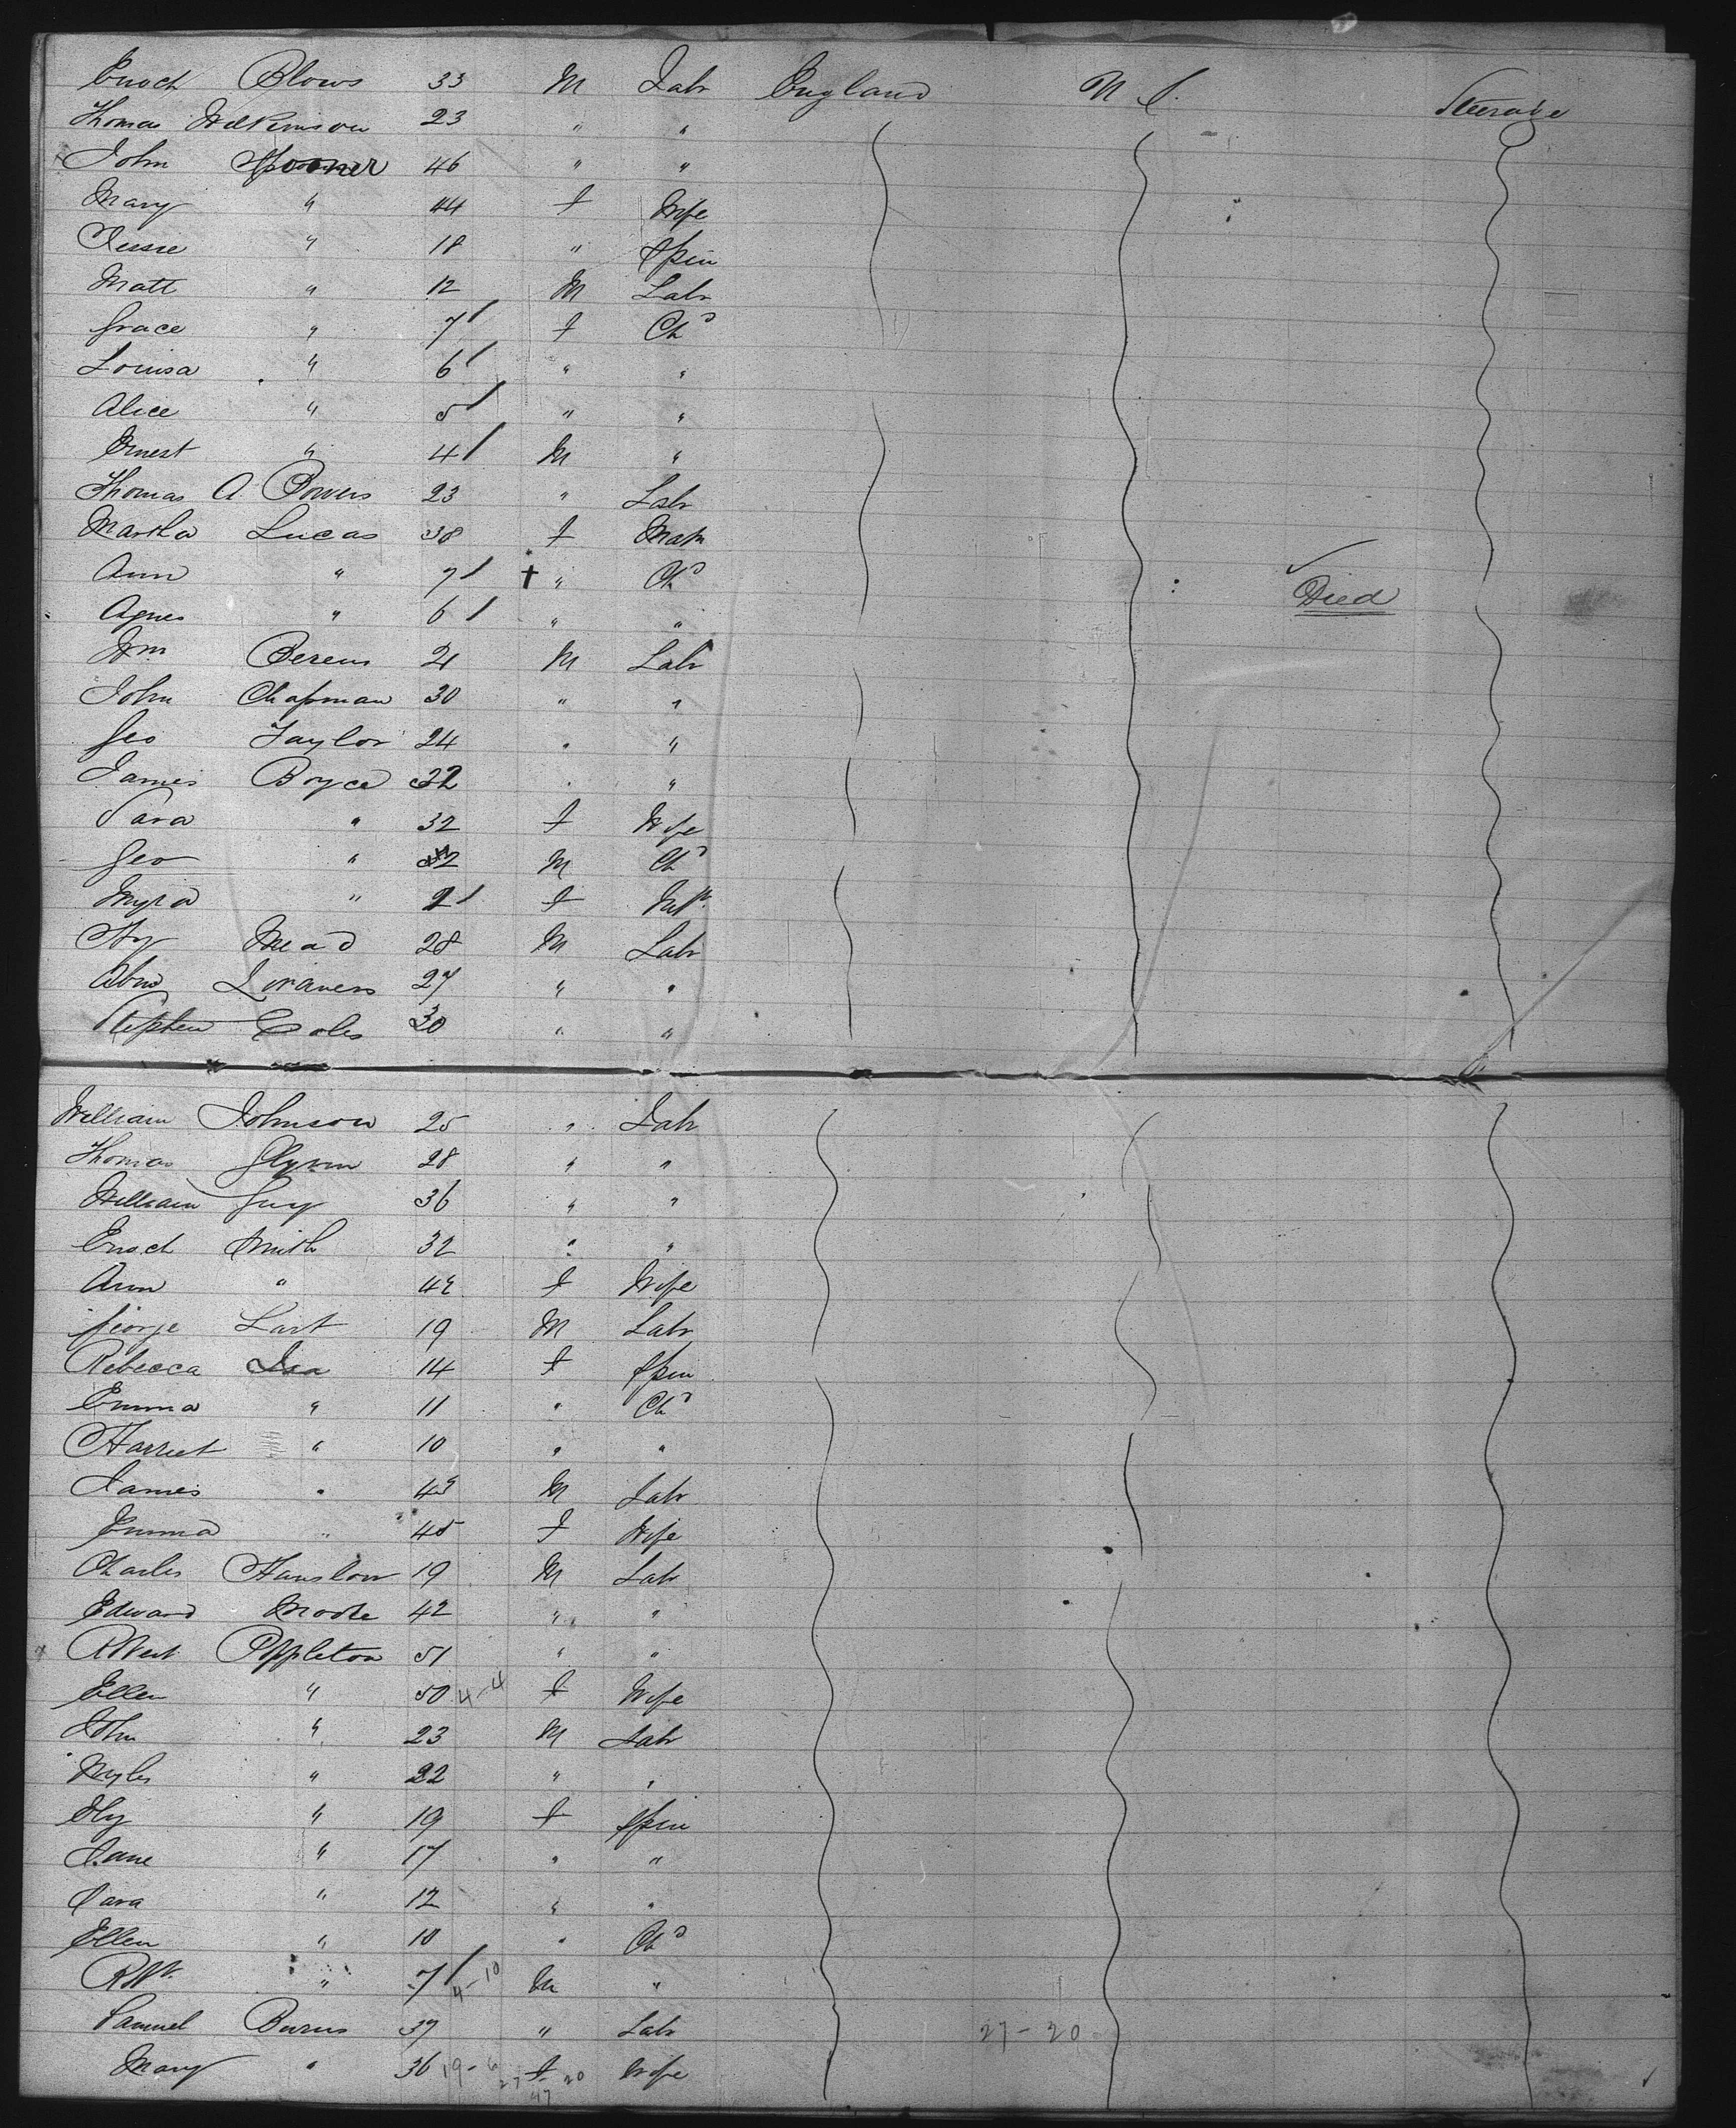 Enoch Blows 33 M Labr England N Y. Steerage
Thomas Wilkinson 23 " "
John Spooner 46 " "
Mary " 44 F Wife
Jessie " 18 " Spin
Matt " 12 M Labr
Grace " 7 / F Chd
Louisa " 6 / " "
Alice " 5 / " "
Ernest " 4 / M "
Thomas A Powers 23 " Labr
Martha Lucas 38 F Matn
Ann " 7 / † " Chd Died
Agnes " 6 / " "
Wm Berens 21 M Labr
John Chapman 30 " "
Geo Taylor 24 " "
James Boyce 32 " "
Sara " 32 F Wife
Geo " M Chd
Myra " / F Inft
Hy Mead 28 M Labr
27 " "
Stephen Coles 30 " "
William Johnson 25 " Labr
Thomas Glynn 28 " "
William Guy 36 " "
Enoch Smith 32 " "
Ann " 42 F Wife
George Last 19 M Labr
Rebecca 14 F Spin
Emma " 11 " Chd
Harriet " 10 " "
James " 43 M Labr
Emma " 45 F Wife
Charles Hanslow 19 M Labr
Edward Moore 42 " "
Robert Appleton 51 " "
Ellen " 50 4-4 F Wife
John " 23 M Labr
Myles " 22 " "
" 19 F Spin
Jane " 17 " "
Sara " 12 " "
Ellen " 10 " Chd
Robt " 7 / 4-10 M "
Samuel Burns 37 " Labr 27-20
Mary " 36 19-6 F Wife
27 20
47